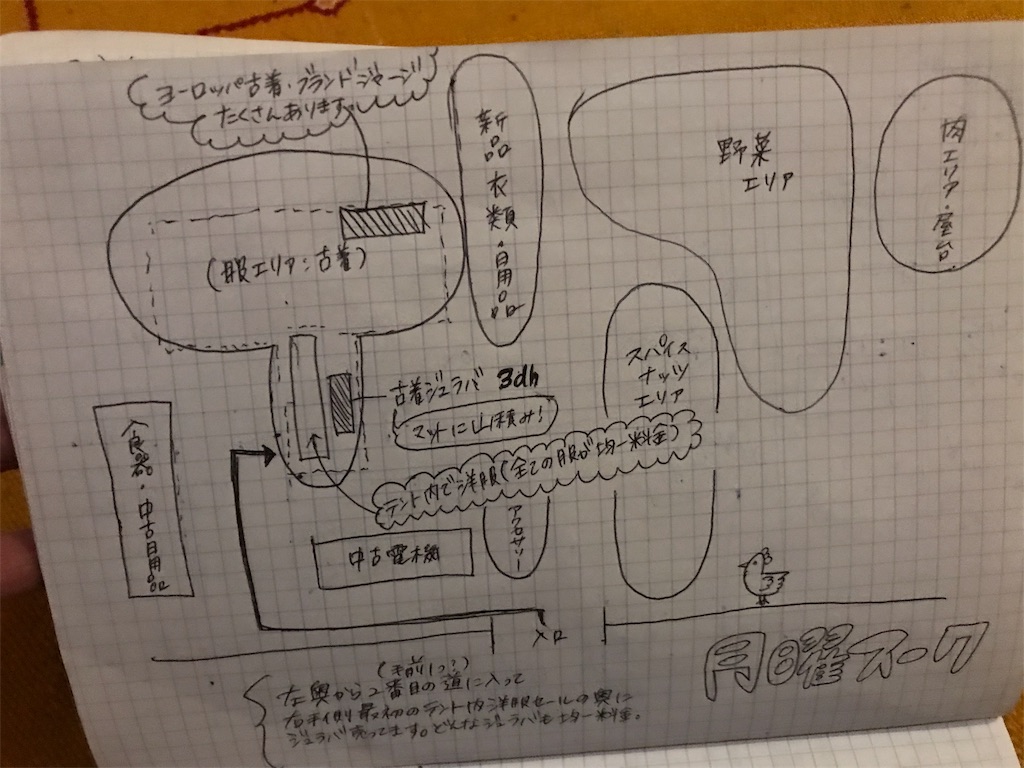 ヨーロッパ古着・ブランドジャージ
たくさんあります
新品衣類・日用品
野菜
エリア
肉エリア・屋台
(服エリア:古着)
スパイス
ナッツ
エリア
古着ジュラバ 3dh
マットに山積み!
テント内で洋服(全ての服が均一料金)
食器・中古日用品
アクセサリー
中古電機
入口
月曜スーク
(手前1つ?)
左奥から2番目の道に入って
右手側最初のテント内洋服セールの奥に
ジュラバ売ってます。どんなジュラバも均一料金。